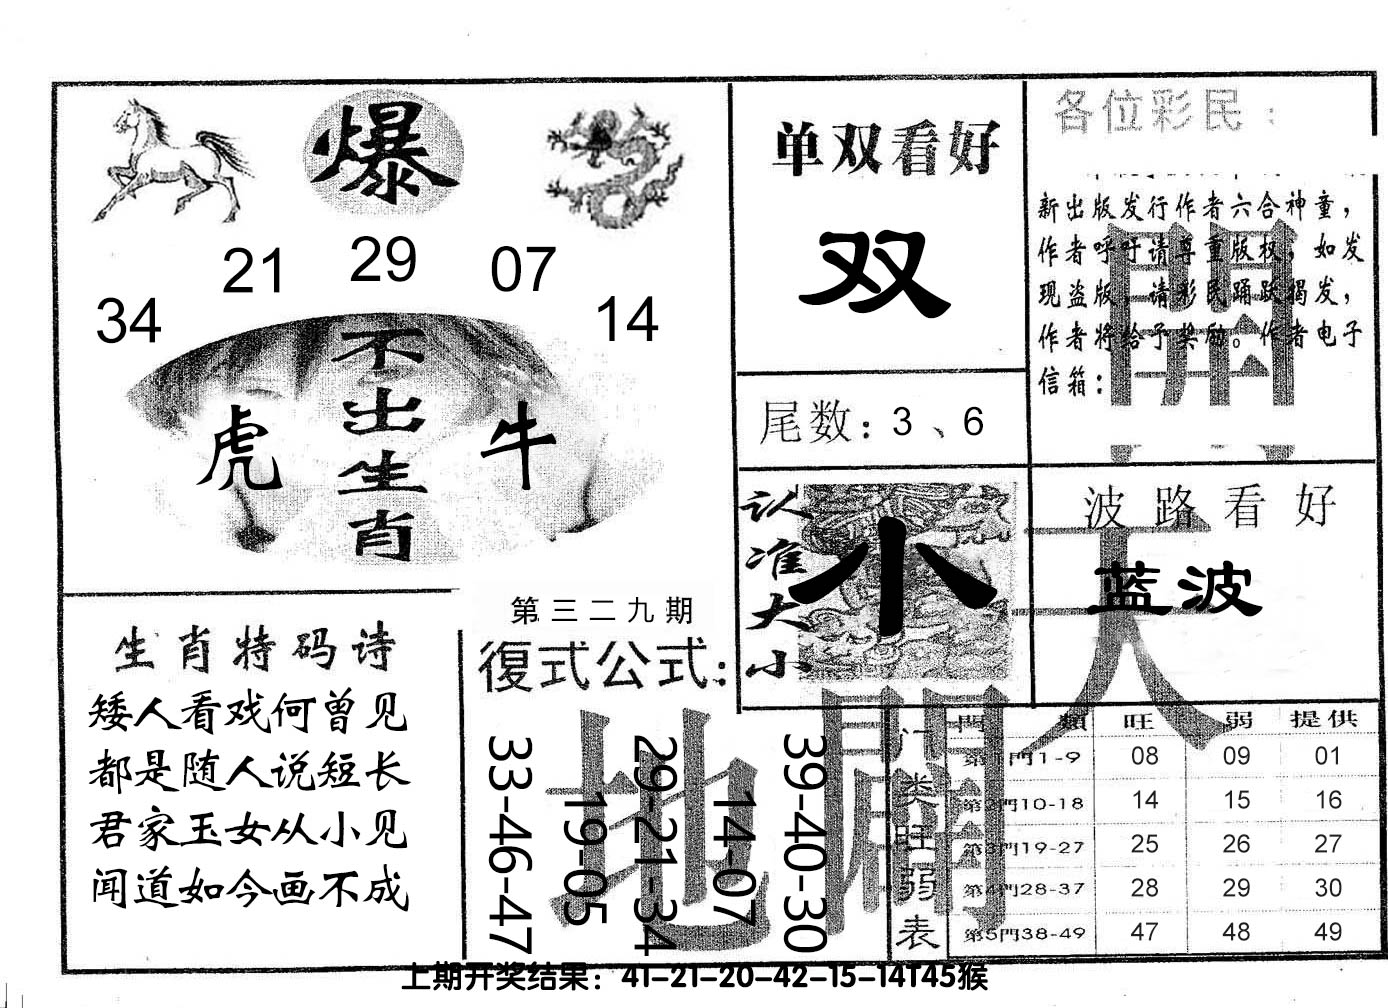 爆
21 29 07
34 14
不出生肖
虎 牛
单双看好
双
尾数：3、6
各位彩民：
新出版发行作者六合神童，
作者呼吁请尊重版权，如发
现盗版，请彩民踊跃揭发，
作者将给予奖励。作者电子
信箱：
認准大小
小
波路看好
蓝波
天
地
開
生肖特码诗
矮人看戏何曾见
都是随人说短长
君家玉女从小见
闻道如今画不成
第三二九期
復式公式：
33-46-47
19-05
29-21-34
14-07
39-40-30
门类旺弱表
門類 旺 弱 提供
第1門1-9 08 09 01
第2門10-18 14 15 16
第3門19-27 25 26 27
第4門28-37 28 29 30
第5門38-49 47 48 49
上期开奖结果：41-21-20-42-15-14T45猴